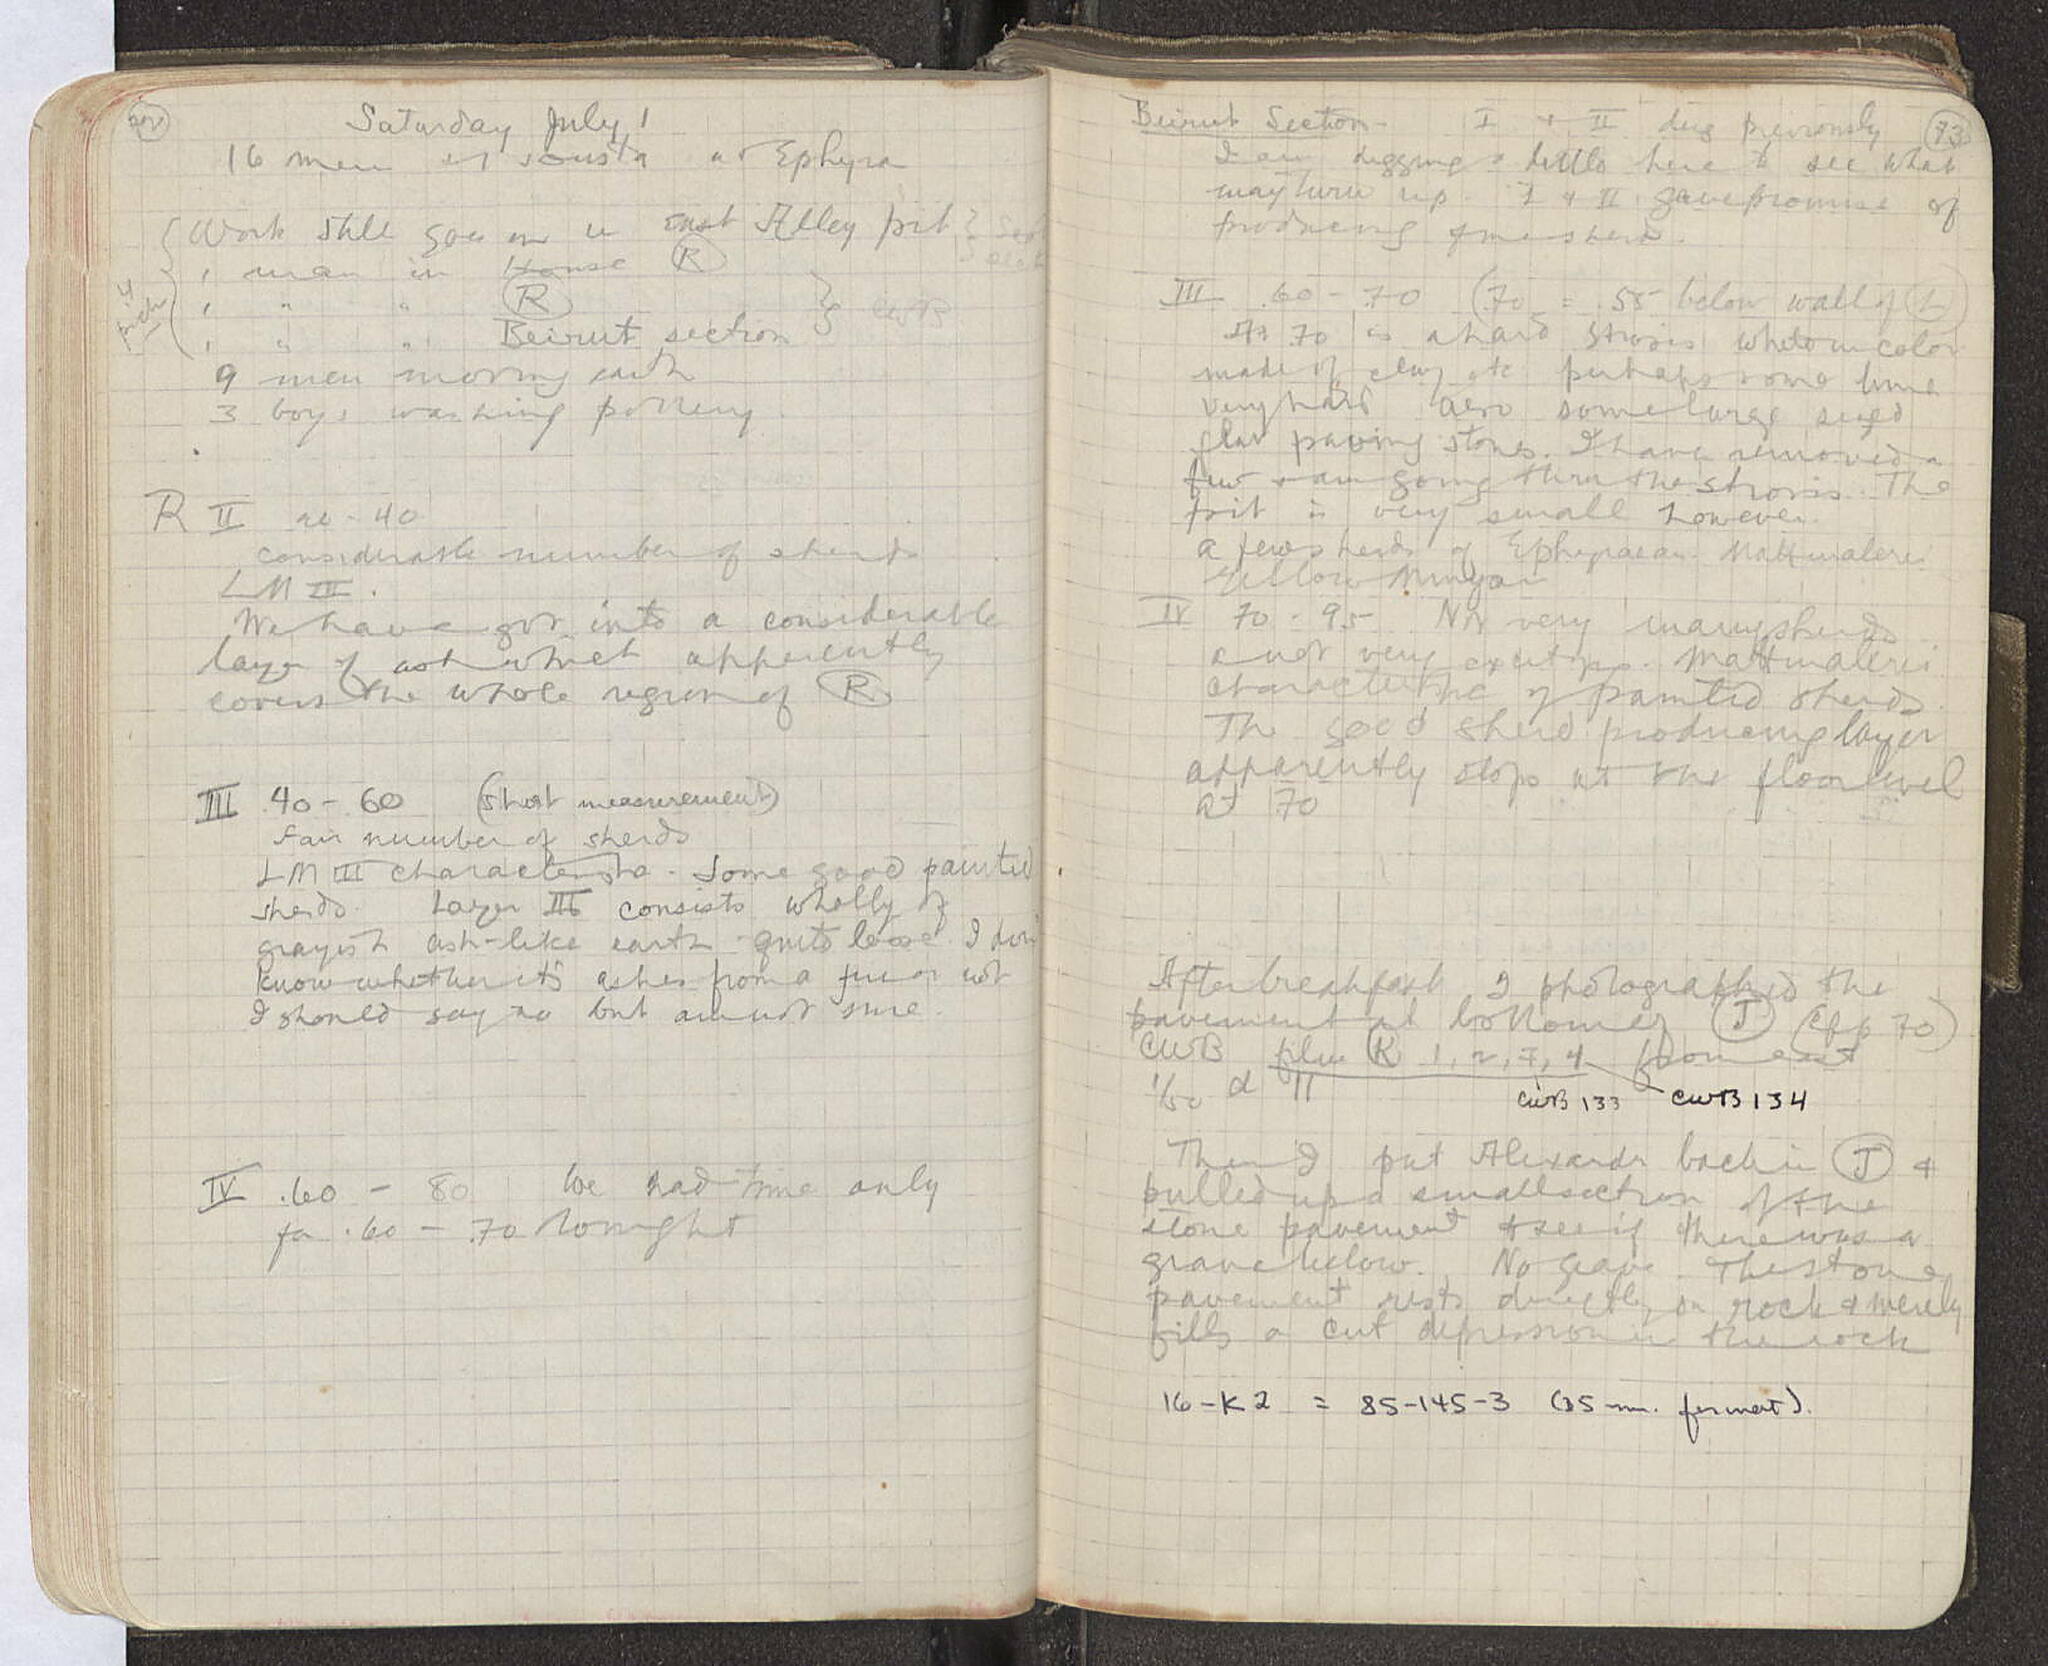 Saturday July 1
16 men at Ephyra
Work still goes on in east Alley pit
1 man in House R
1 " " R
1 " " Beirut section
CWB
9 men moving earth
3 boys washing pottery.
R II 20-40
considerable number of sherds
LM III.
We have got into a considerable
layer of ash which apparently
covers the whole region of R
III .40-60 (short measurement)
Fair number of sherds
LM III characteristic. Some good painted
sherds. Layer III consists wholly of
grayish ash-like earth quite loose. I don't
know whether it's ashes from a fire or not
I should say no but am not sure.
IV .60 - 80 We had time only
for .60 - .70 tonight
93
Beirut Section - I + II dug previously
I am digging a little here to see what
may turn up. I + II gave promise of
producing fine sherds.
III .60 - .70 (.70 = .55 below wall of L)
At .70 is a hard strosis white in color
made of clay etc perhaps some lime
very hard also some large sized
flat paving stones. I have removed a
few + am going thru the strosis. The
pit is very small however.
a few sherds of Ephyraean. Mattmalerei
Yellow Minyan
IV 70 - 95 Not very many sherds
& not very exciting. Mattmalerei
characteristic of painted sherds.
The good sherd producing layer
apparently stops at the floor level
at .70
After breakfast I photographed the
pavement at bottom of J (cf p 70)
CWB film R 1, 2, 3, 4 from east
1/50 d 11
CWB 133 CWB 134
Then I put Alexandr back in J +
pulled up a small section of the
stone pavement to see if there was a
grave below. No grave. The stone
pavement rests directly on rock & merely
fills a cut depression in the rock
16-K2 = 85-145-3 (35 mm. format).